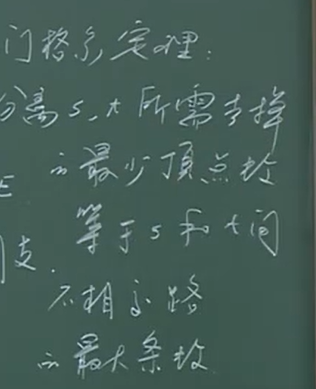 门格尔定理:
分离s、t所需去掉
的最少顶点数
等于s和t间
支.
不相交路
的最大条数